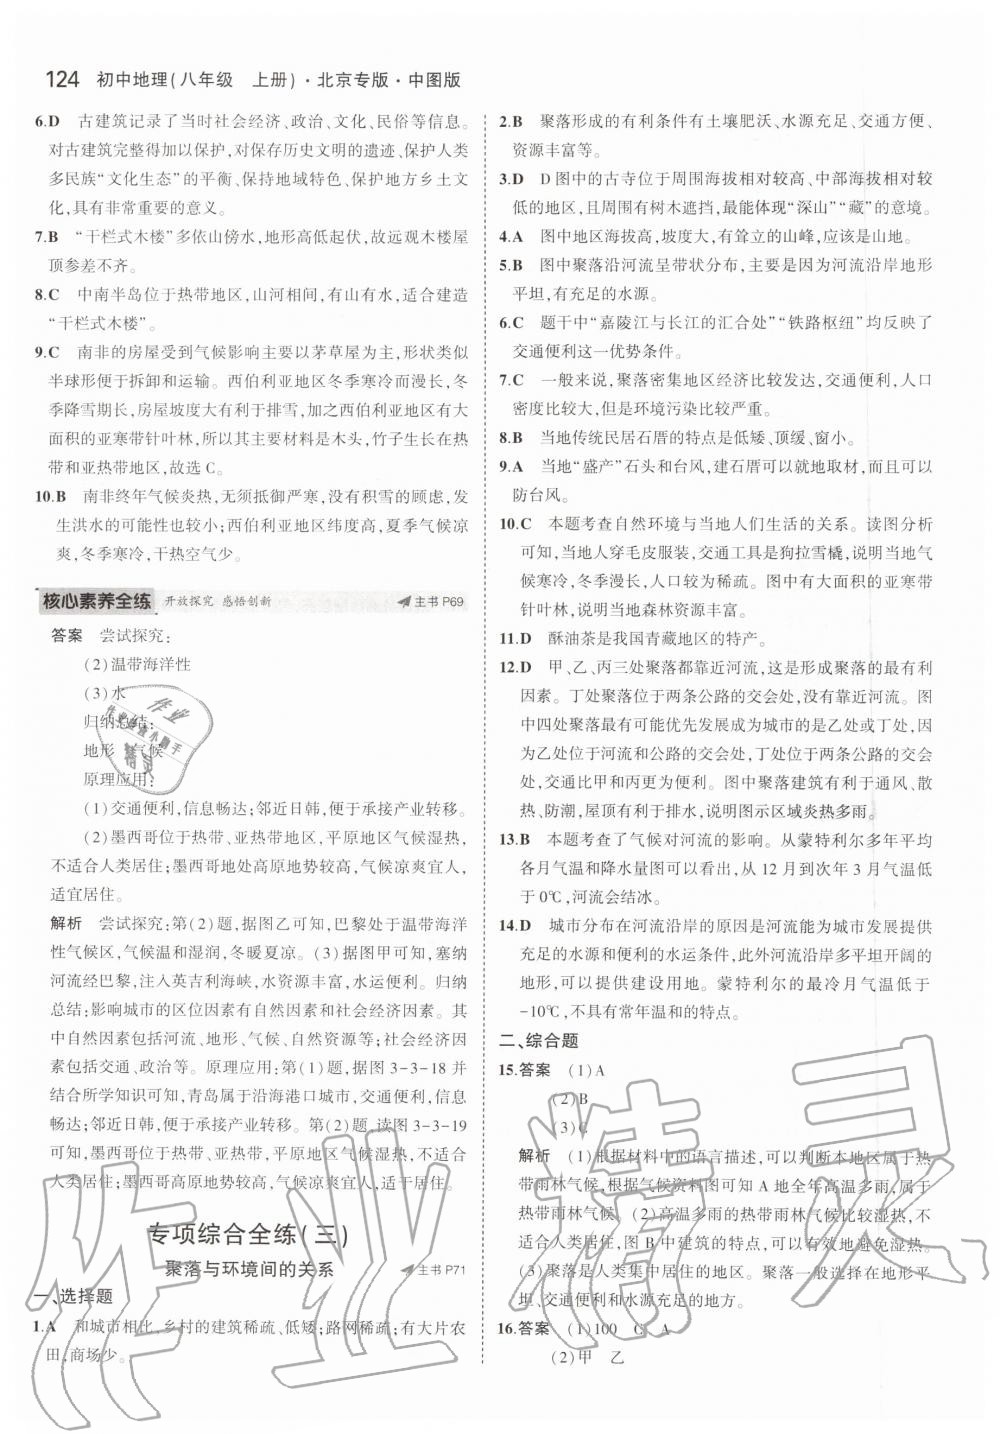 124 初中地理(八年级 上册)·北京专版·中图版
6.D 古建筑记录了当时社会经济、政治、文化、民俗等信息。
对古建筑完整得加以保护,对保存历史的遗迹、保护人类
多民族“文化生态”的平衡、保持地域特色、保护地方乡土文
化,具有非常重要的意义。
7.B “干栏式木楼”多依山傍水,地形高低起伏,故远观木楼屋
顶参差不齐。
8.C 中南半岛位于热带地区,山河相间,有山有水,适合建造
“干栏式木楼”。
9.C 南非的房屋受到气候影响主要以茅草屋为主,形状类似
半球形便于拆卸和运输。西伯利亚地区冬季寒冷而漫长,冬
季降雪期长,房屋坡度大有利于排雪,加之西伯利亚地区有大
面积的亚寒带针叶林,所以其主要材料是木头,竹子生长在热
带和亚热带地区,故选C。
10.B 南非终年气候炎热,无须抵御严寒,没有积雪的顾虑,发
生洪水的可能性也较小;西伯利亚地区纬度高,夏季气候凉
爽,冬季寒冷,干热空气少。
核心素养全练 开放探究 感悟创新 主书P69
答案 尝试探究:
(2)温带海洋性
(3)水
归纳总结:
地形 气候
原理应用:
(1)交通便利,信息畅达;邻近日韩,便于承接产业转移。
(2)墨西哥位于热带、亚热带地区,平原地区气候湿热,
不适合人类居住;墨西哥地处高原地势较高,气候凉爽宜人,
适宜居住。
解析 尝试探究:第(2)题,据图乙可知,巴黎处于温带海洋
性气候区,气候温和湿润,冬暖夏凉。(3)据图甲可知,塞纳
河流经巴黎,注入英吉利海峡,水资源丰富,水运便利。归纳
总结:影响城市的区位因素有自然因素和社会经济因素。其
中自然因素包括河流、地形、气候、自然资源等;社会经济因
素包括交通、政治等。原理应用:第(1)题,读图3-3-18并
结合所学知识可知,青岛属于沿海港口城市,交通便利,信息
畅达;邻近日韩,便于承接产业转移。第(2)题,读图3-3-19
可知,墨西哥位于热带、亚热带,平原地区气候湿热,不适合
人类居住;墨西哥高原地势较高,气候凉爽宜人,适宜居住。
专项综合全练(三)
聚落与环境间的关系 主书P71
一、选择题
1.A 和城市相比,乡村的建筑稀疏、低矮;路网稀疏;有大片农
田,商场少。
2.B 聚落形成的有利条件有土壤肥沃、水源充足、交通方便、
资源丰富等。
3.D D图中的古寺位于周围海拔相对较高、中部海拔相对较
低的地区,且周围有树木遮挡,最能体现“深山”“藏”的意境。
4.A 图中地区海拔高,坡度大,有耸立的山峰,应该是山地。
5.B 图中聚落沿河流呈带状分布,主要是因为河流沿岸地形
平坦,有充足的水源。
6.C 题干中“嘉陵江与长江的汇合处”“铁路枢纽”均反映了
交通便利这一优势条件。
7.C 一般来说,聚落密集地区经济比较发达,交通便利,人口
密度比较大,但是环境污染比较严重。
8.B 当地传统民居石厝的特点是低矮、顶缓、窗小。
9.A 当地“盛产”石头和台风,建石厝可以就地取材,而且可以
防台风。
10.C 本题考查自然环境与当地人们生活的关系。读图分析
可知,当地人穿毛皮服装,交通工具是狗拉雪橇,说明当地气
候寒冷,冬季漫长,人口较为稀疏。当地有大面积的亚寒带
针叶林,说明当地森林资源丰富。
11.D 酥油茶是我国青藏地区的特产。
12.D 甲、乙、丙三处聚落都靠近河流,这是形成聚落的最有利
因素。丁处聚落位于两条公路的交会处,没有靠近河流。图
中四处聚落最有可能优先发展成为城市的是乙处或丁处,因
为乙处位于河流和公路的交会处,丁处位于两条公路的交会
处,交通比甲和丙更为便利。图中聚落建筑有利于通风、散
热、防潮,屋顶有利于排水,说明图示区域炎热多雨。
13.B 本题考查了气候对河流的影响。从蒙特利尔多年平均
各月气温和降水量图可以看出,从12月到次年3月气温低
于0℃,河流会结冰。
14.D 城市分布在河流沿岸的原因是河流能为城市发展提供
充足的水源和便利的水运条件,此外河流沿岸多平坦开阔的
地形,可以提供建设用地。蒙特利尔的最冷月气温低于
-10℃,不具有常年温和的特点。
二、综合题
15.答案 (1)A
(2)B
(3)C
解析 (1)根据材料中的语言描述,可以判断本地区属于热
带雨林气候,根据气候资料图可知A地全年高温多雨,属于
热带雨林气候。(2)高温多雨的热带雨林气候比较湿热,根
据所学知识,图B中建筑的特点,可以有效地避免湿热。
(3)聚落是人类集中居住的地区。聚落一般选择在地形平
坦、交通便利和水源充足的地方。
16.答案 (1)100 C A
(2)甲 乙
作业精灵